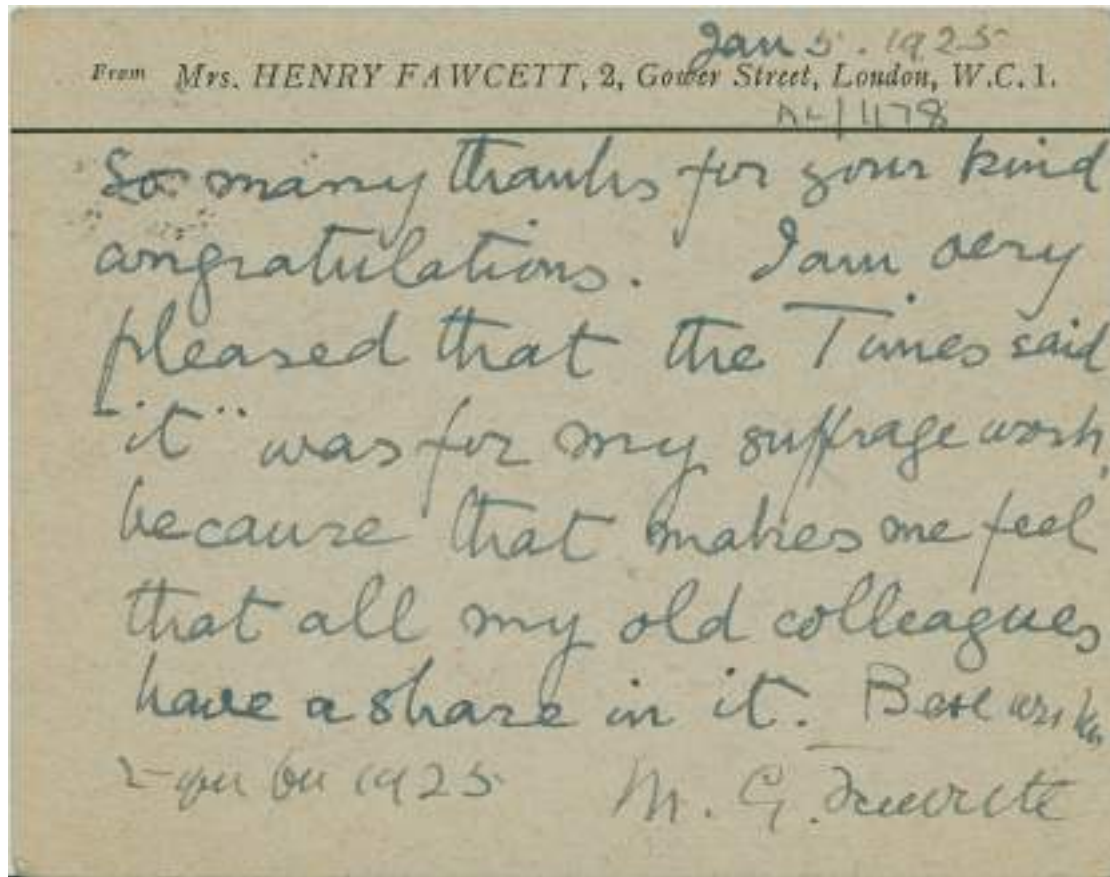 Jan 5. 1925
From Mrs. HENRY FAWCETT, 2, Gower Street, London, W.C.1.
So many thanks for your kind
congratulations. I am very
pleased that the Times said
"it" was for my suffrage work,
because that makes me feel
that all my old colleagues
have a share in it. Best wishes
for 1925 M. G. Fawcett